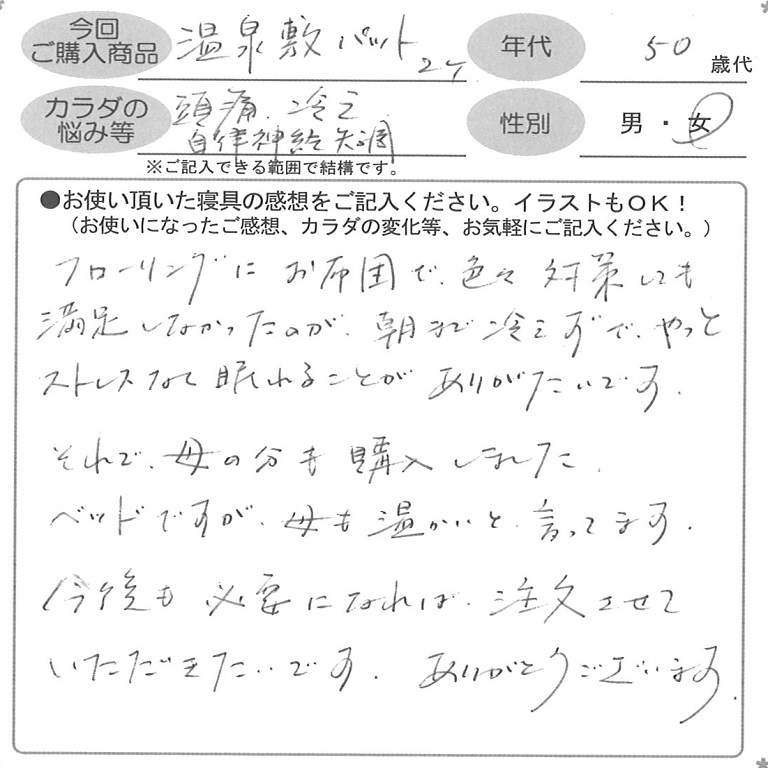 今回
ご購入商品
温泉敷パット 2ケ
年代
50 歳代
カラダの
悩み等
頭痛、冷え
自律神経失調
性別
男・女
※ご記入できる範囲で結構です。
●お使い頂いた寝具の感想をご記入ください。イラストもOK！
（お使いになったご感想、カラダの変化等、お気軽にご記入ください。）
フローリングにお布団で、色々対策しても
満足しなかったのが、朝まで冷えずで、やっと
ストレスなく眠れることがありがたいです。
それで、母の分も購入しました。
ベッドですが、母も温かいと、言ってます。
今後も必要になれば、注文させて
いただきたいです。ありがとうございます。